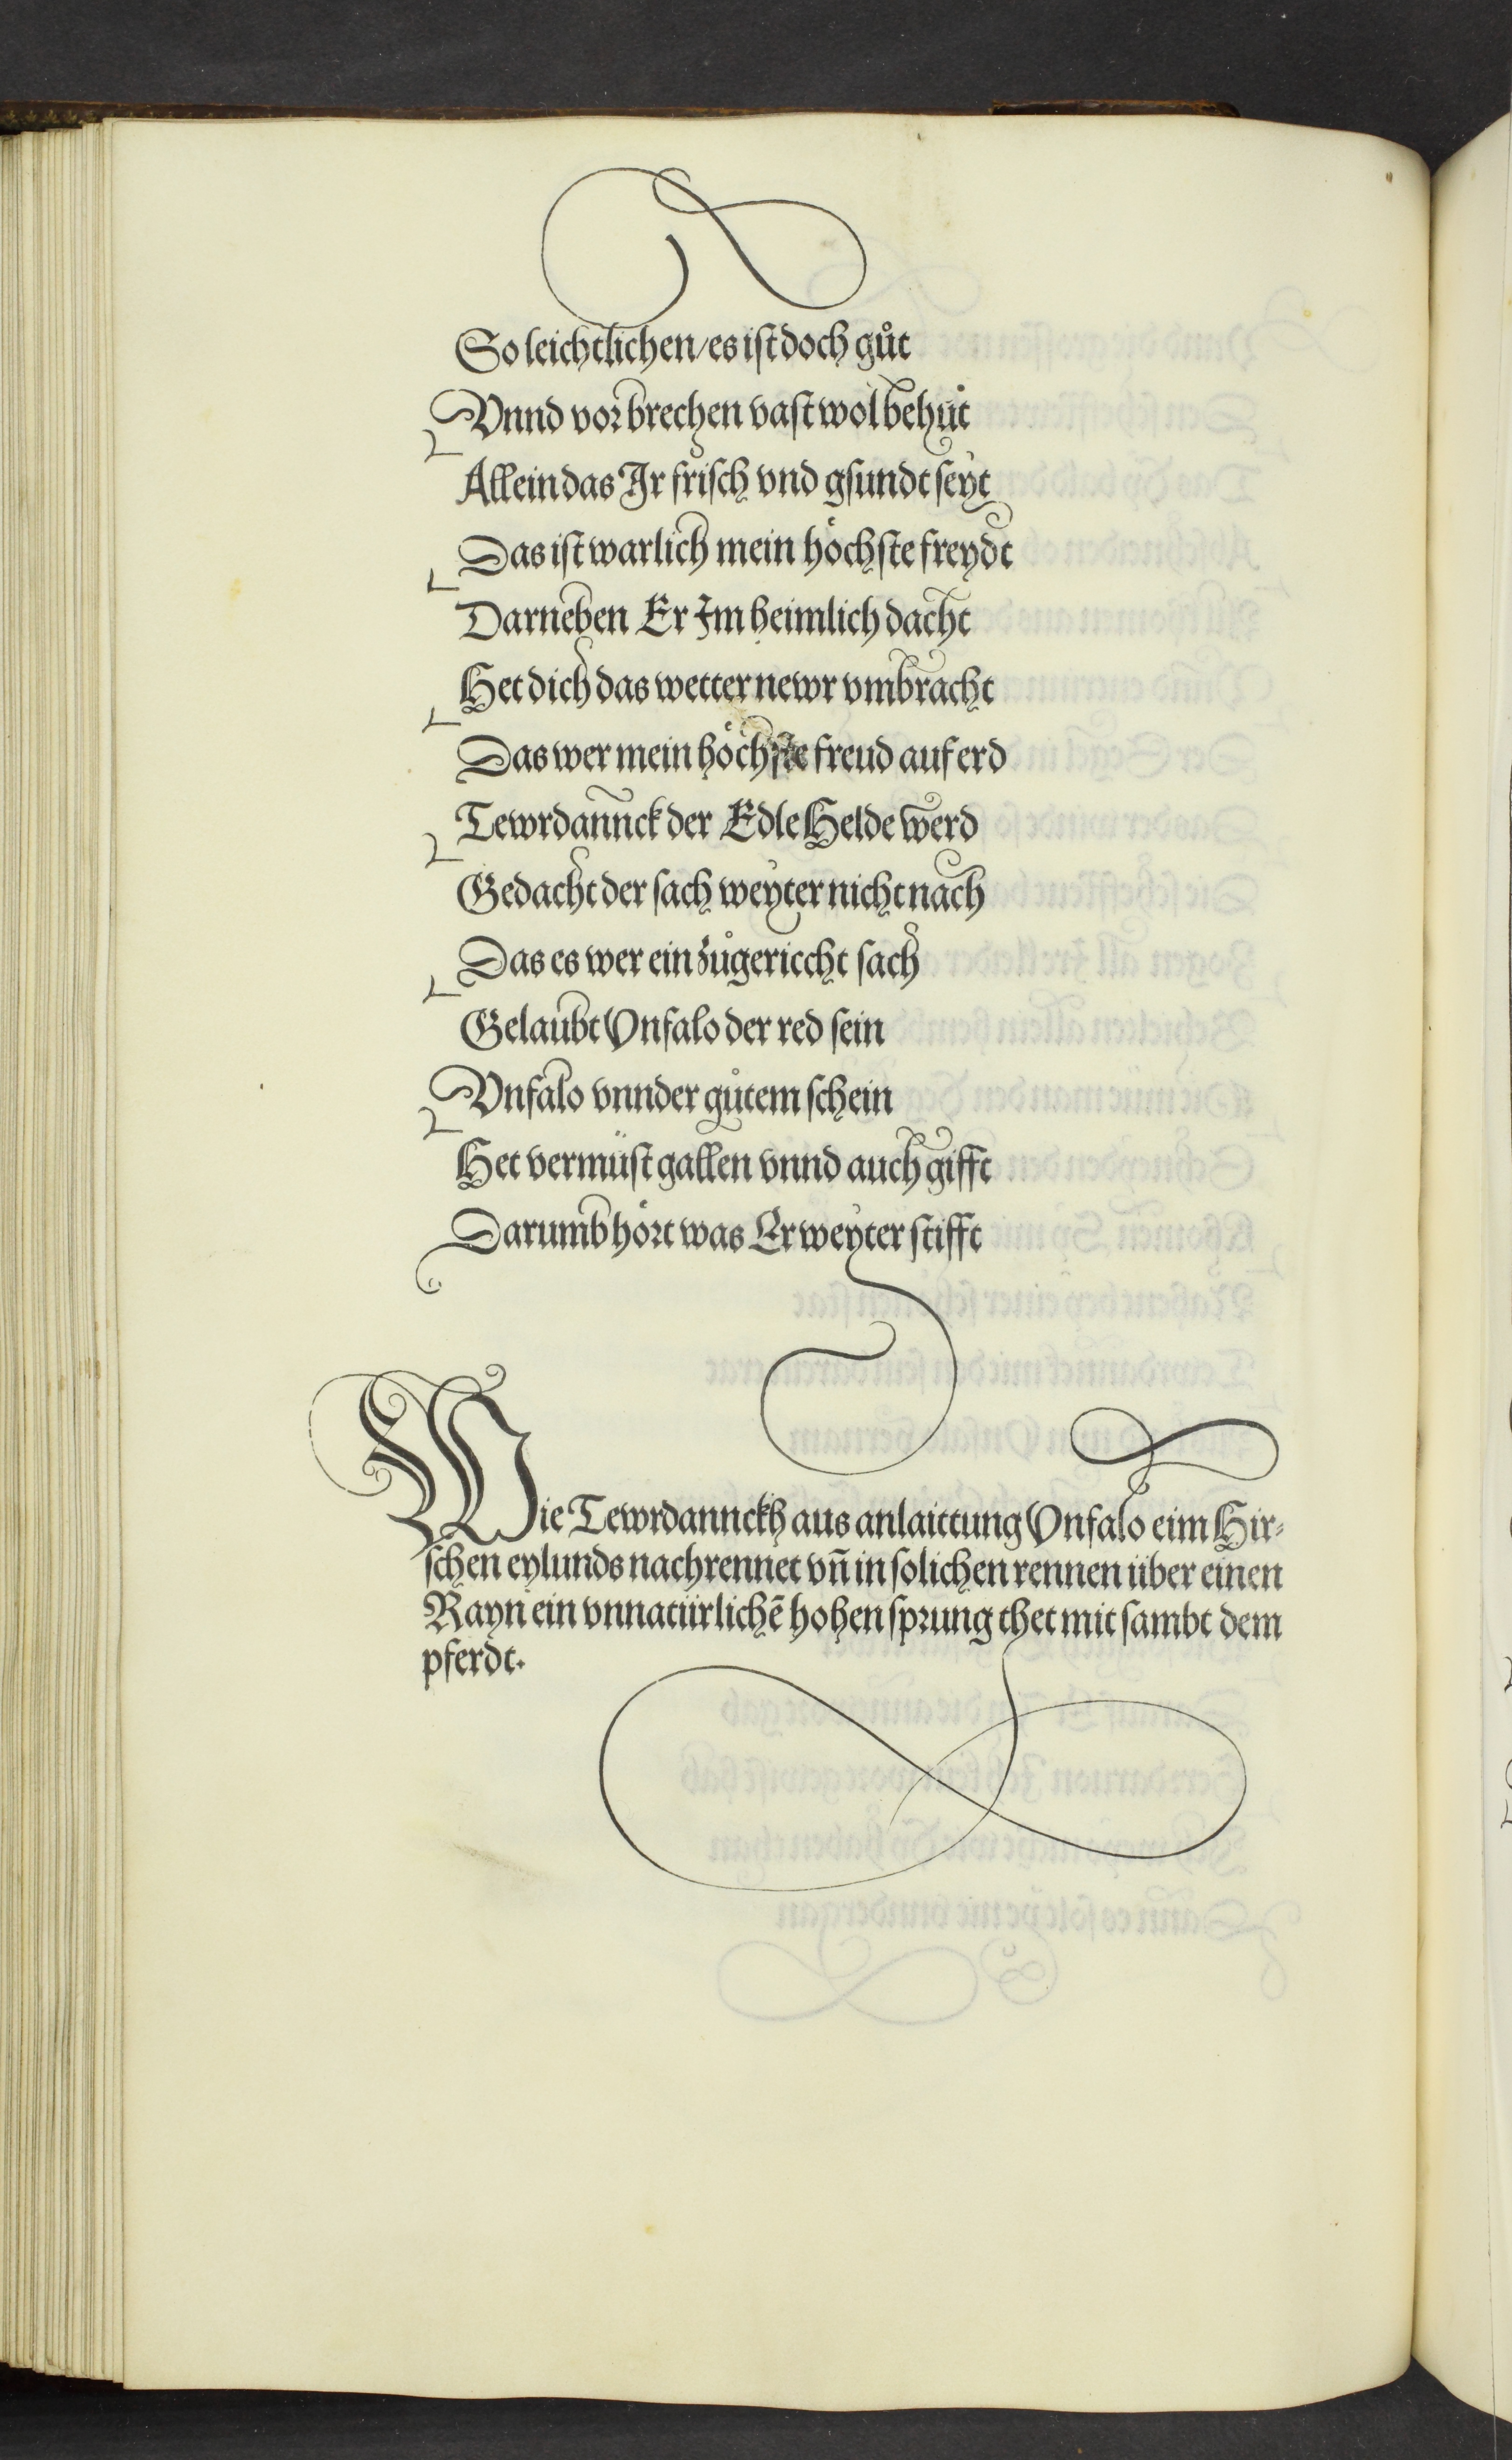 So leichtlichen/es ist doch gůt
Vnnd vor brechen vast wol behůt
Allein das Jr frisch vnd gsundt seyt
Das ist warlich mein höchste freydt
Darneben Er Im heimlich dacht
Het dich das wetter newr vmbracht
Das wer mein höchste freud auf erd
Tewrdannck der Edle Helde werd
Gedacht der sach weyter nicht nach
Das es wer ein zůgericcht sach
Gelaubt Vnfalo der red sein
Vnfalo vnnder gůtem schein
Het vermüst gallen vnnd auch gifft
Darumb hört was Er weyter stifft
Wie Tewrdannckh aus anlaittung Vnfalo eim Hir⸗
schen eylunds nachrennet vn̄ in solichen rennen über einen
Rayn ein vnnatürlichē hohen sprung thet mit sambt dem
pferdt.